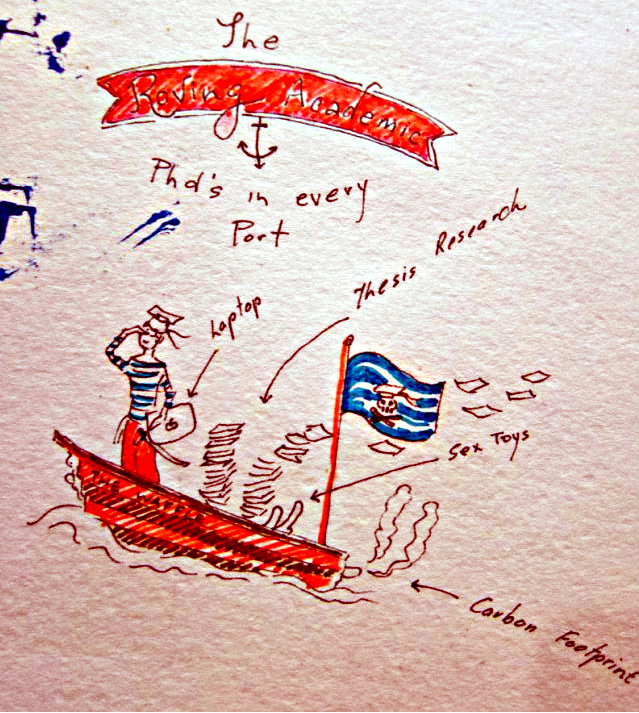 The
Roving Academic
Phd's in every
Port
Laptop
Thesis Research
Sex Toys
THE
Carbon Footprint